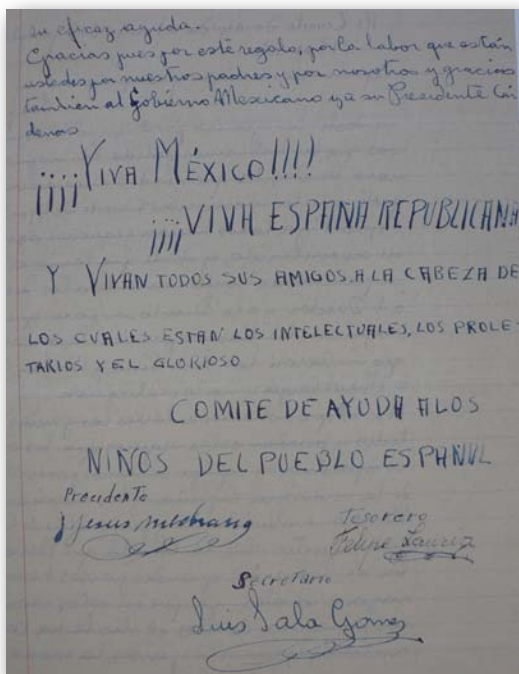 su eficaz ayuda.
Gracias pues por este regalo, por la labor que están
ustedes por nuestros padres y por nosotros y gracias
tambien al Gobierno Mexicano y a su Presidente Cár
denas
¡¡¡¡VIVA MÉXICO!!!!
¡¡¡¡VIVA ESPAÑA REPUBLICANA
Y VIVAN TODOS SUS AMIGOS. A LA CABEZA DE
LOS CUALES ESTAN LOS INTELECTUALES, LOS PROLE-
TARIOS Y EL GLORIOSO
COMITE DE AYUDA A LOS
NIÑOS DEL PUEBLO ESPAÑOL
Precidente
J Jesus
Tesorero
Felipe
Secretario
Luis Sala Gomez